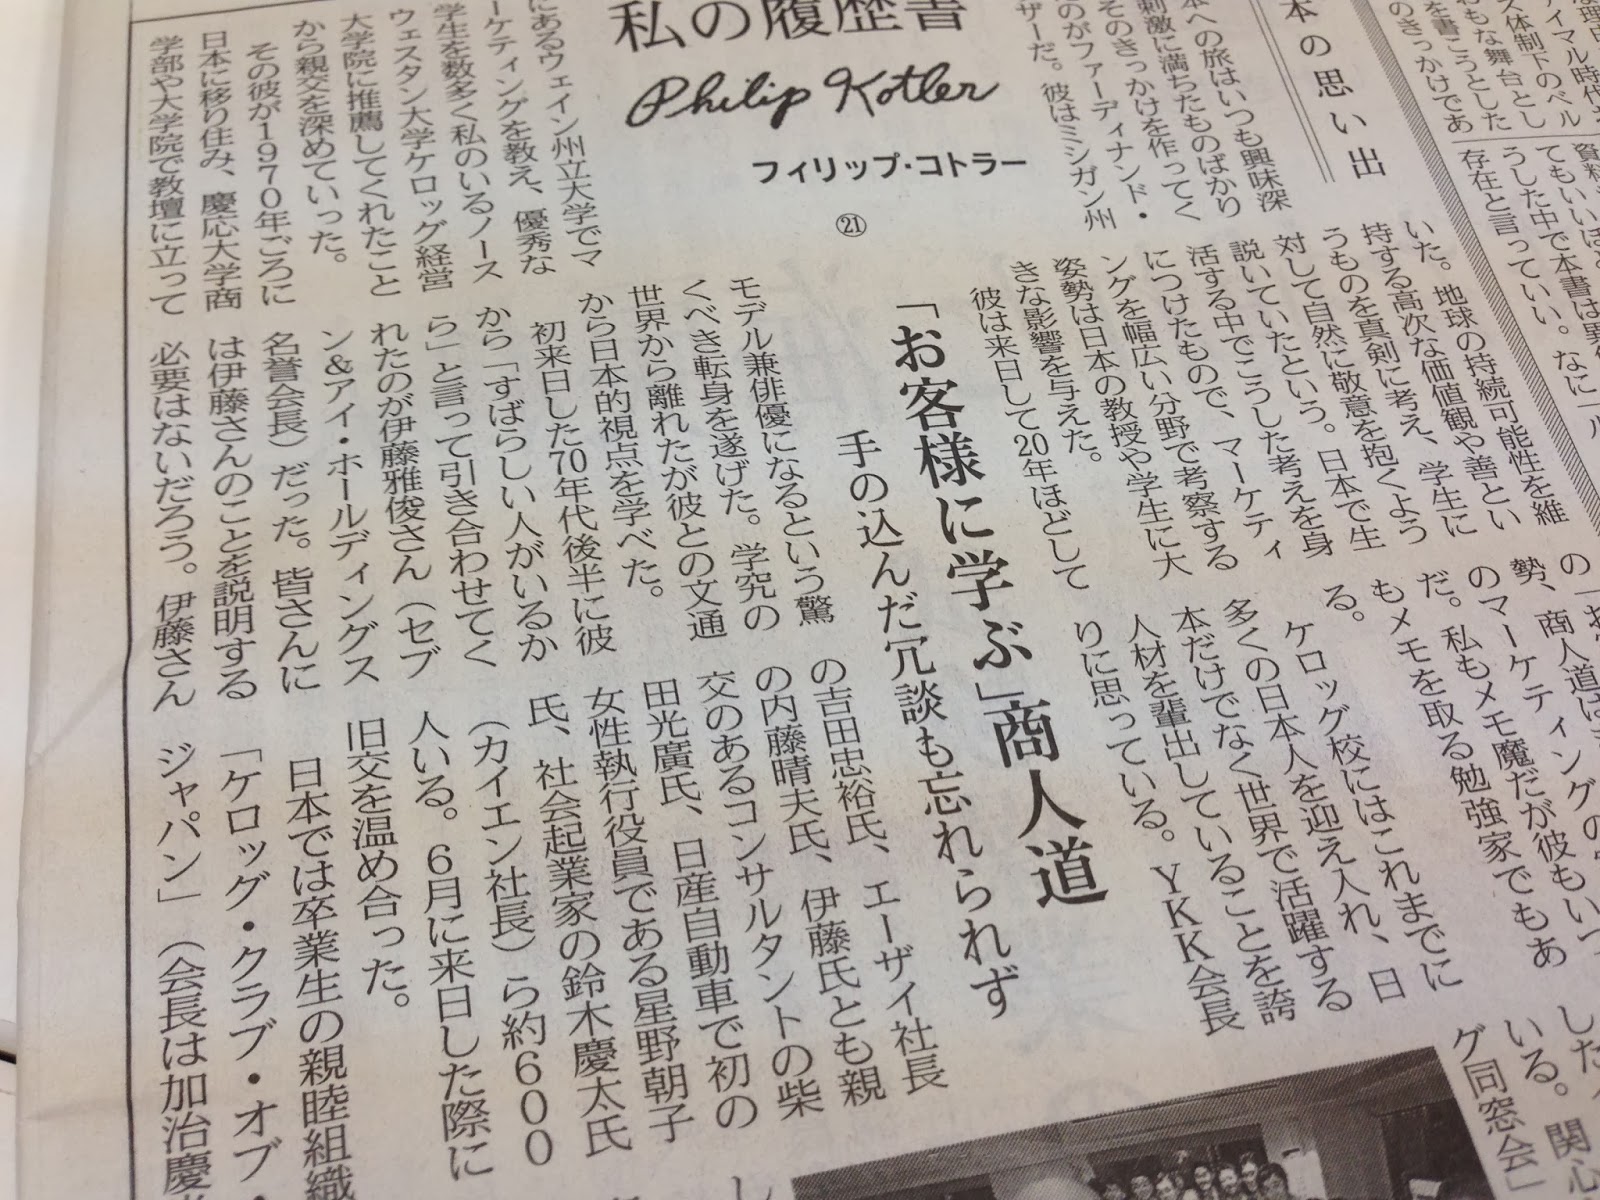 私の履歴書
Philip Kotler
フィリップ・コトラー
㉑
本の思い出
「お客様に学ぶ」商人道
手の込んだ冗談も忘れられず
本への旅はいつも興味深
刺激に満ちたものばかり
そのきっかけを作ってく
のがファーディナンド・
ザーだ。彼はミシガン州
にあるウェイン州立大学でマ
ーケティングを教え、優秀な
学生を数多く私のいるノース
ウェスタン大学ケロッグ経営
大学院に推薦してくれたこと
から親交を深めていった。
その彼が1970年ごろに
日本に移り住み、慶応大学商
学部や大学院で教壇に立って
いた。地球の持続可能性を維
持する高次な価値観や善とい
うものを真剣に考え、学生に
対して自然に敬意を抱くよう
説いていたという。日本で生
活する中でこうした考えを身
につけたもので、マーケティ
ングを幅広い分野で考察する
姿勢は日本の教授や学生に大
きな影響を与えた。
彼は来日して20年ほどして
モデル兼俳優になるという驚
くべき転身を遂げた。学究の
世界から離れたが彼との文通
から日本的視点を学べた。
初来日した70年代後半に彼
から「すばらしい人がいるか
ら」と言って引き合わせてく
れたのが伊藤雅俊さん（セブ
ン＆アイ・ホールディングス
名誉会長）だった。皆さんに
は伊藤さんのことを説明する
必要はないだろう。伊藤さん
の「お
勢、商人道は
のマーケティングの
だ。私もメモ魔だが彼もいつ
もメモを取る勉強家でもあ
る。
ケロッグ校にはこれまでに
多くの日本人を迎え入れ、日
本だけでなく世界で活躍する
人材を輩出していることを誇
りに思っている。YKK会長
の吉田忠裕氏、エーザイ社長
の内藤晴夫氏、伊藤氏とも親
交のあるコンサルタントの柴
田光廣氏、日産自動車で初の
女性執行役員である星野朝子
氏、社会起業家の鈴木慶太氏
（カイエン社長）ら約600
人いる。6月に来日した際に
旧交を温め合った。
日本では卒業生の親睦組織
「ケロッグ・クラブ・オブ・
ジャパン」（会長は加治慶
した
いる。関心
グ同窓会」
アイマル時代
ス体制下のベル
おもな舞台とし
を書こうとした
のきっかけであ
てもいいほ
うした中で本書は異
存在と言っていい。なに